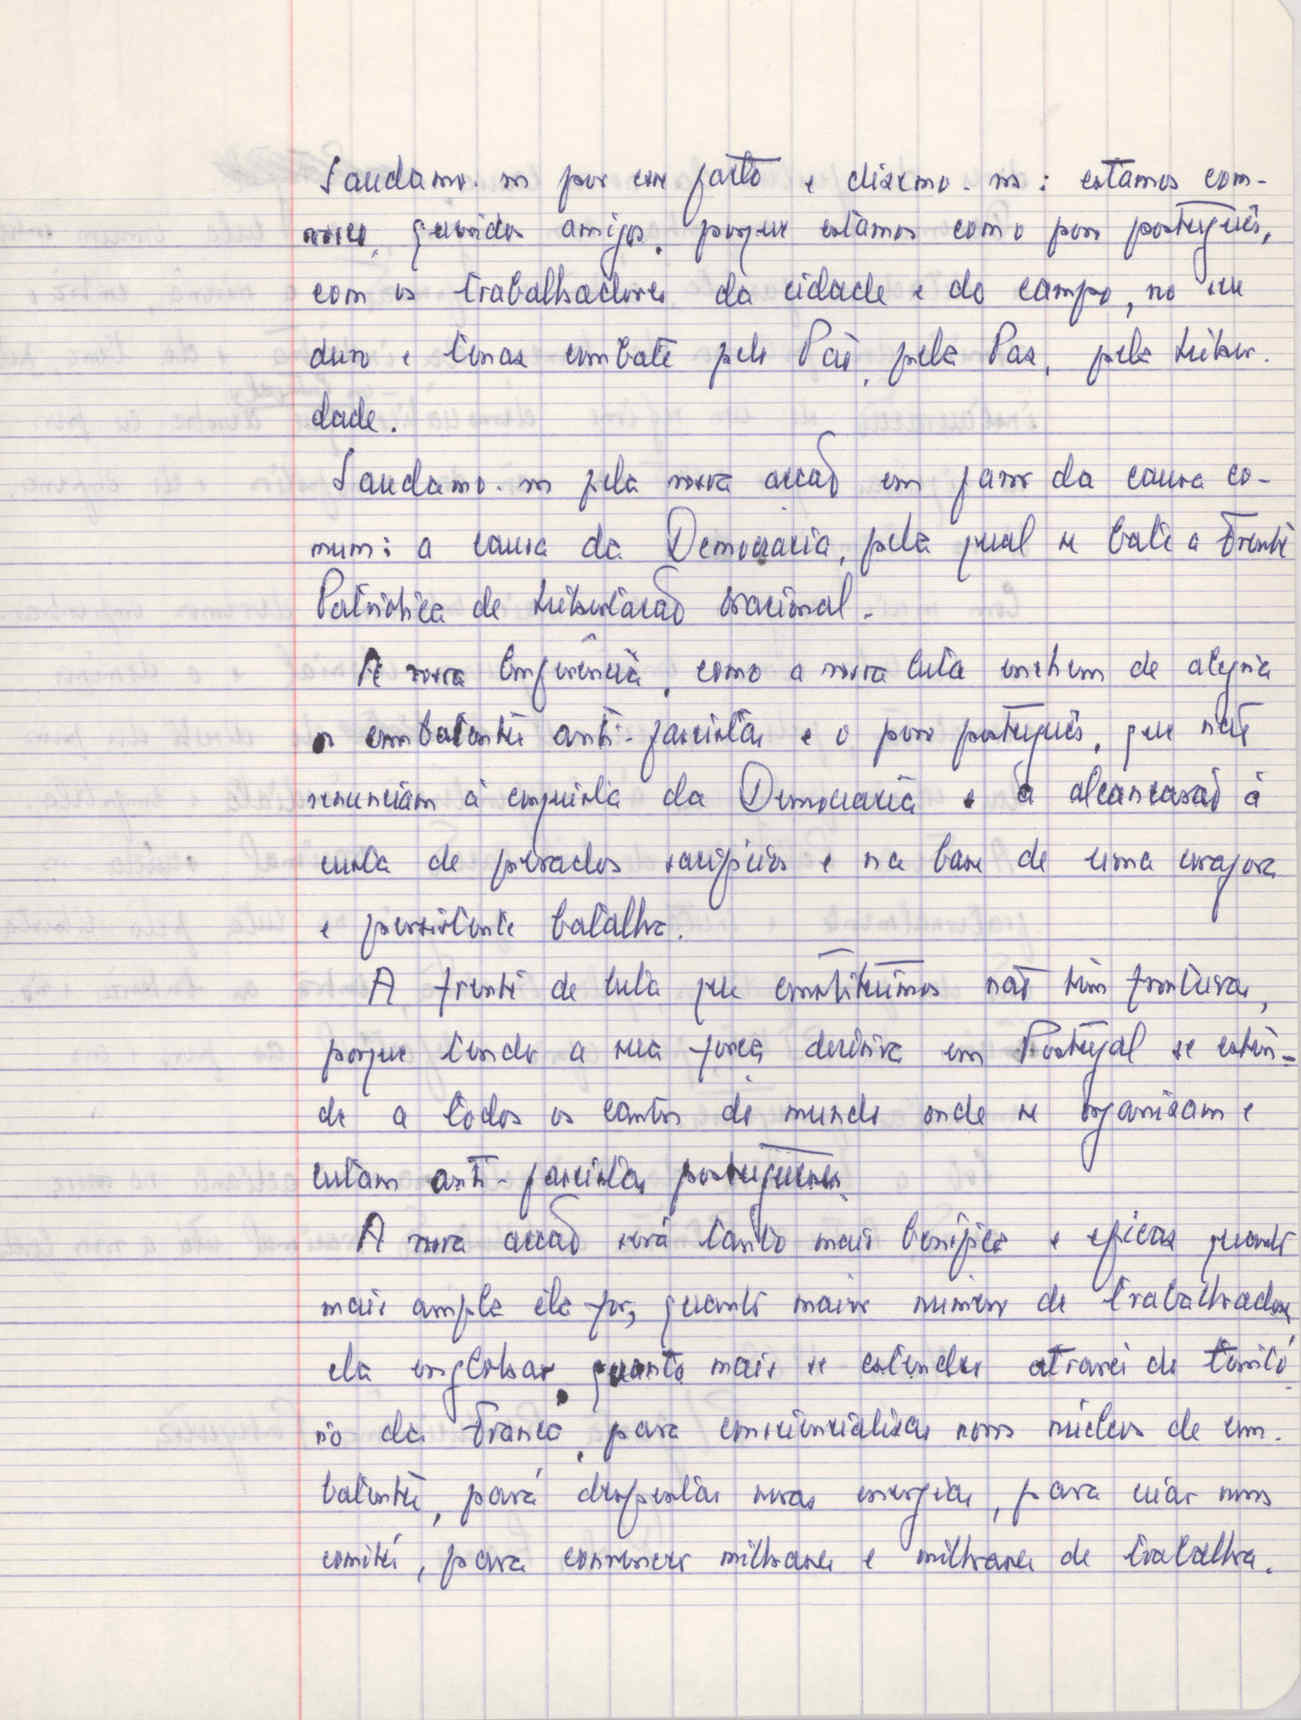 Saudamo-vos por esse facto e dizemo-vos: estamos com-
vosco, queridos amigos, porque estamos com o povo português,
com os trabalhadores da cidade e do campo, no seu
duro e tenaz combate pelo Pão, pela Paz, pela Liber-
dade.
Saudamo-vos pela vossa acção em favor da causa co-
mum: a causa da Democracia, pela qual se bate a Frente
Patriótica de Libertação Nacional.
A vossa Conferência, como a vossa luta enchem de alegria
os combatentes anti-fascistas e o povo português, que não
renunciam à conquista da Democracia e a alcançarão à
custa de pesados sacrifícios e na base de uma corajosa
e persistente batalha.
A frente de luta que constituímos não tem fronteiras,
porque tendo a sua força decisiva em Portugal se esten-
de a todos os cantos do mundo onde se organizam e
lutam anti-fascistas portugueses.
A vossa acção será tanto mais benéfica e eficaz quanto
mais ampla ela for, quanto maior número de trabalhadores
ela englobar, quanto mais se estender através do territó-
rio da França, para consciencializar novos núcleos de com-
batentes, para despertar novas energias, para criar novos
comités, para convencer milhares e milhares de trabalha-